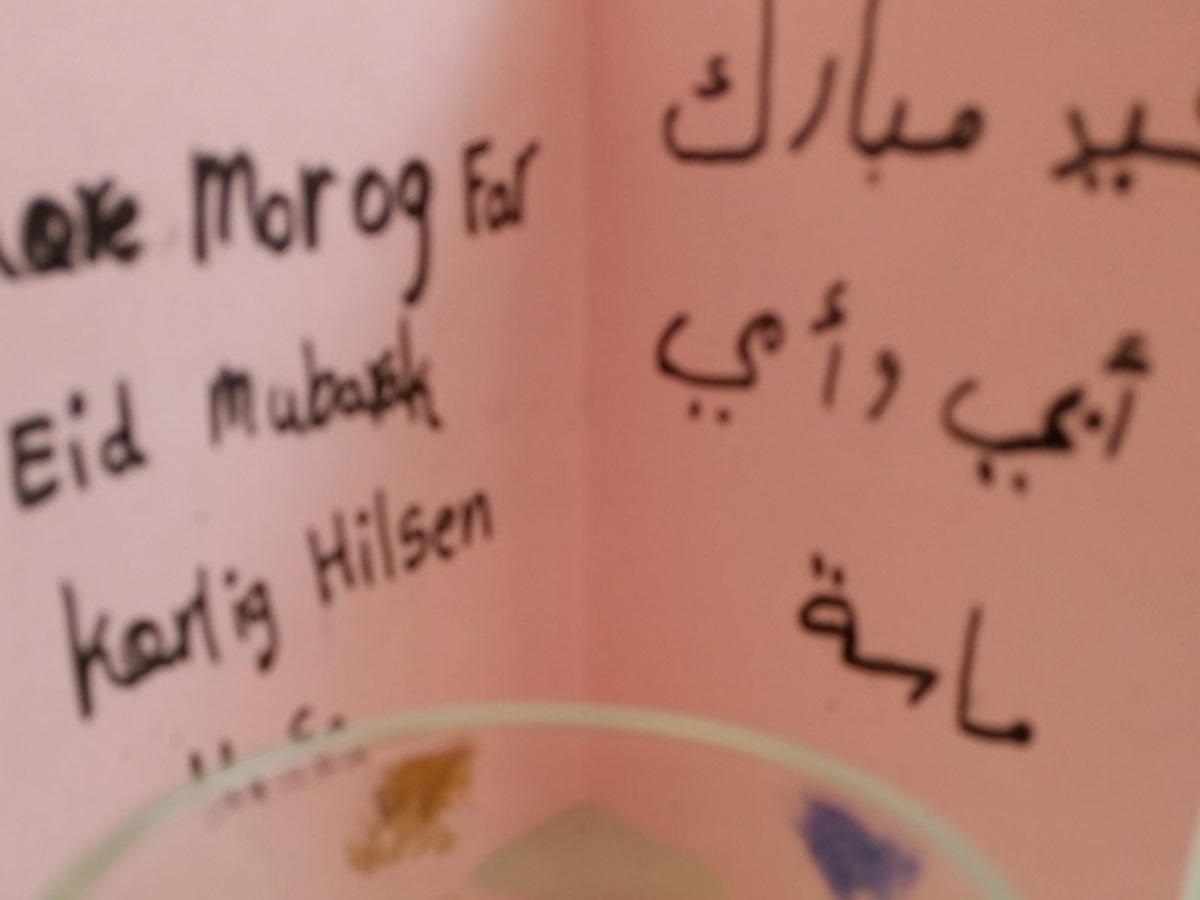 Kære Mor og Far
Eid Mubarak
Kærlig Hilsen
عيد مبارك
أبي وأمي
ماسة